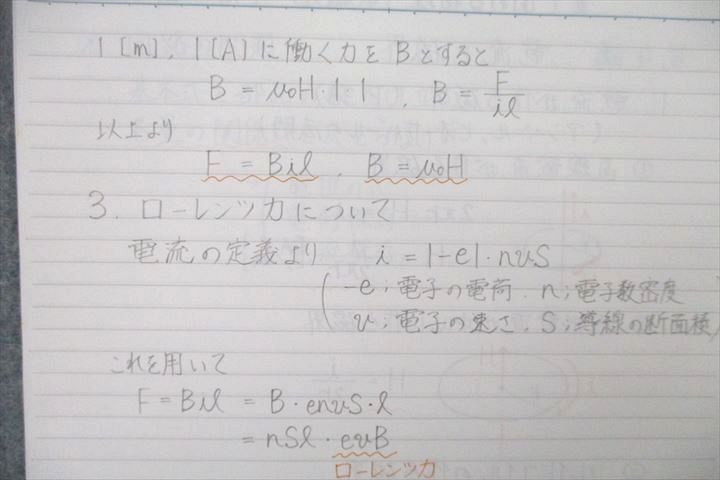 1[m], 1[A]に働く力をBとすると
B = μ0H・1・1 , B = F/iℓ
以上より
F = Biℓ , B = μ0H
3. ローレンツ力について
電流の定義より i = |-e|・nvS
(-e;電子の電荷. n;電子数密度
v;電子の速さ. S;導線の断面積)
これを用いて
F = Biℓ = B・envS・ℓ
= nSℓ・evB
ローレンツ力